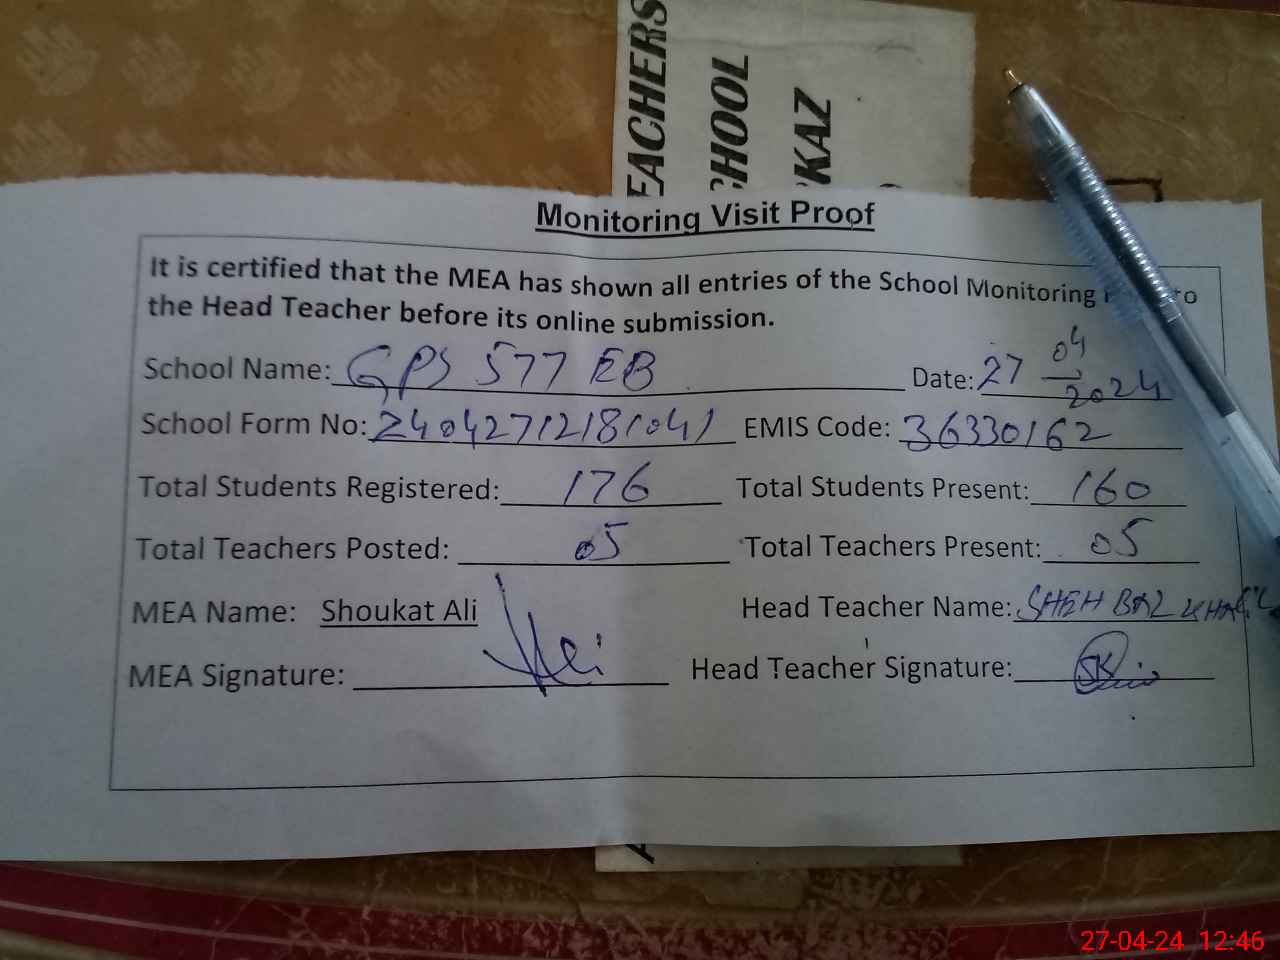 EACHERS
CHOOL
KAZ
Monitoring Visit Proof
It is certified that the MEA has shown all entries of the School Monitoring to
the Head Teacher before its online submission.
School Name: GPS 577 EB Date: 27 04 2024
School Form No: EMIS Code: 36330162
Total Students Registered: 176 Total Students Present: 160
Total Teachers Posted: 05 Total Teachers Present: 05
MEA Name: Shoukat Ali Head Teacher Name: SHEHBAZ
MEA Signature: Head Teacher Signature: SK
27-04-24 12:46